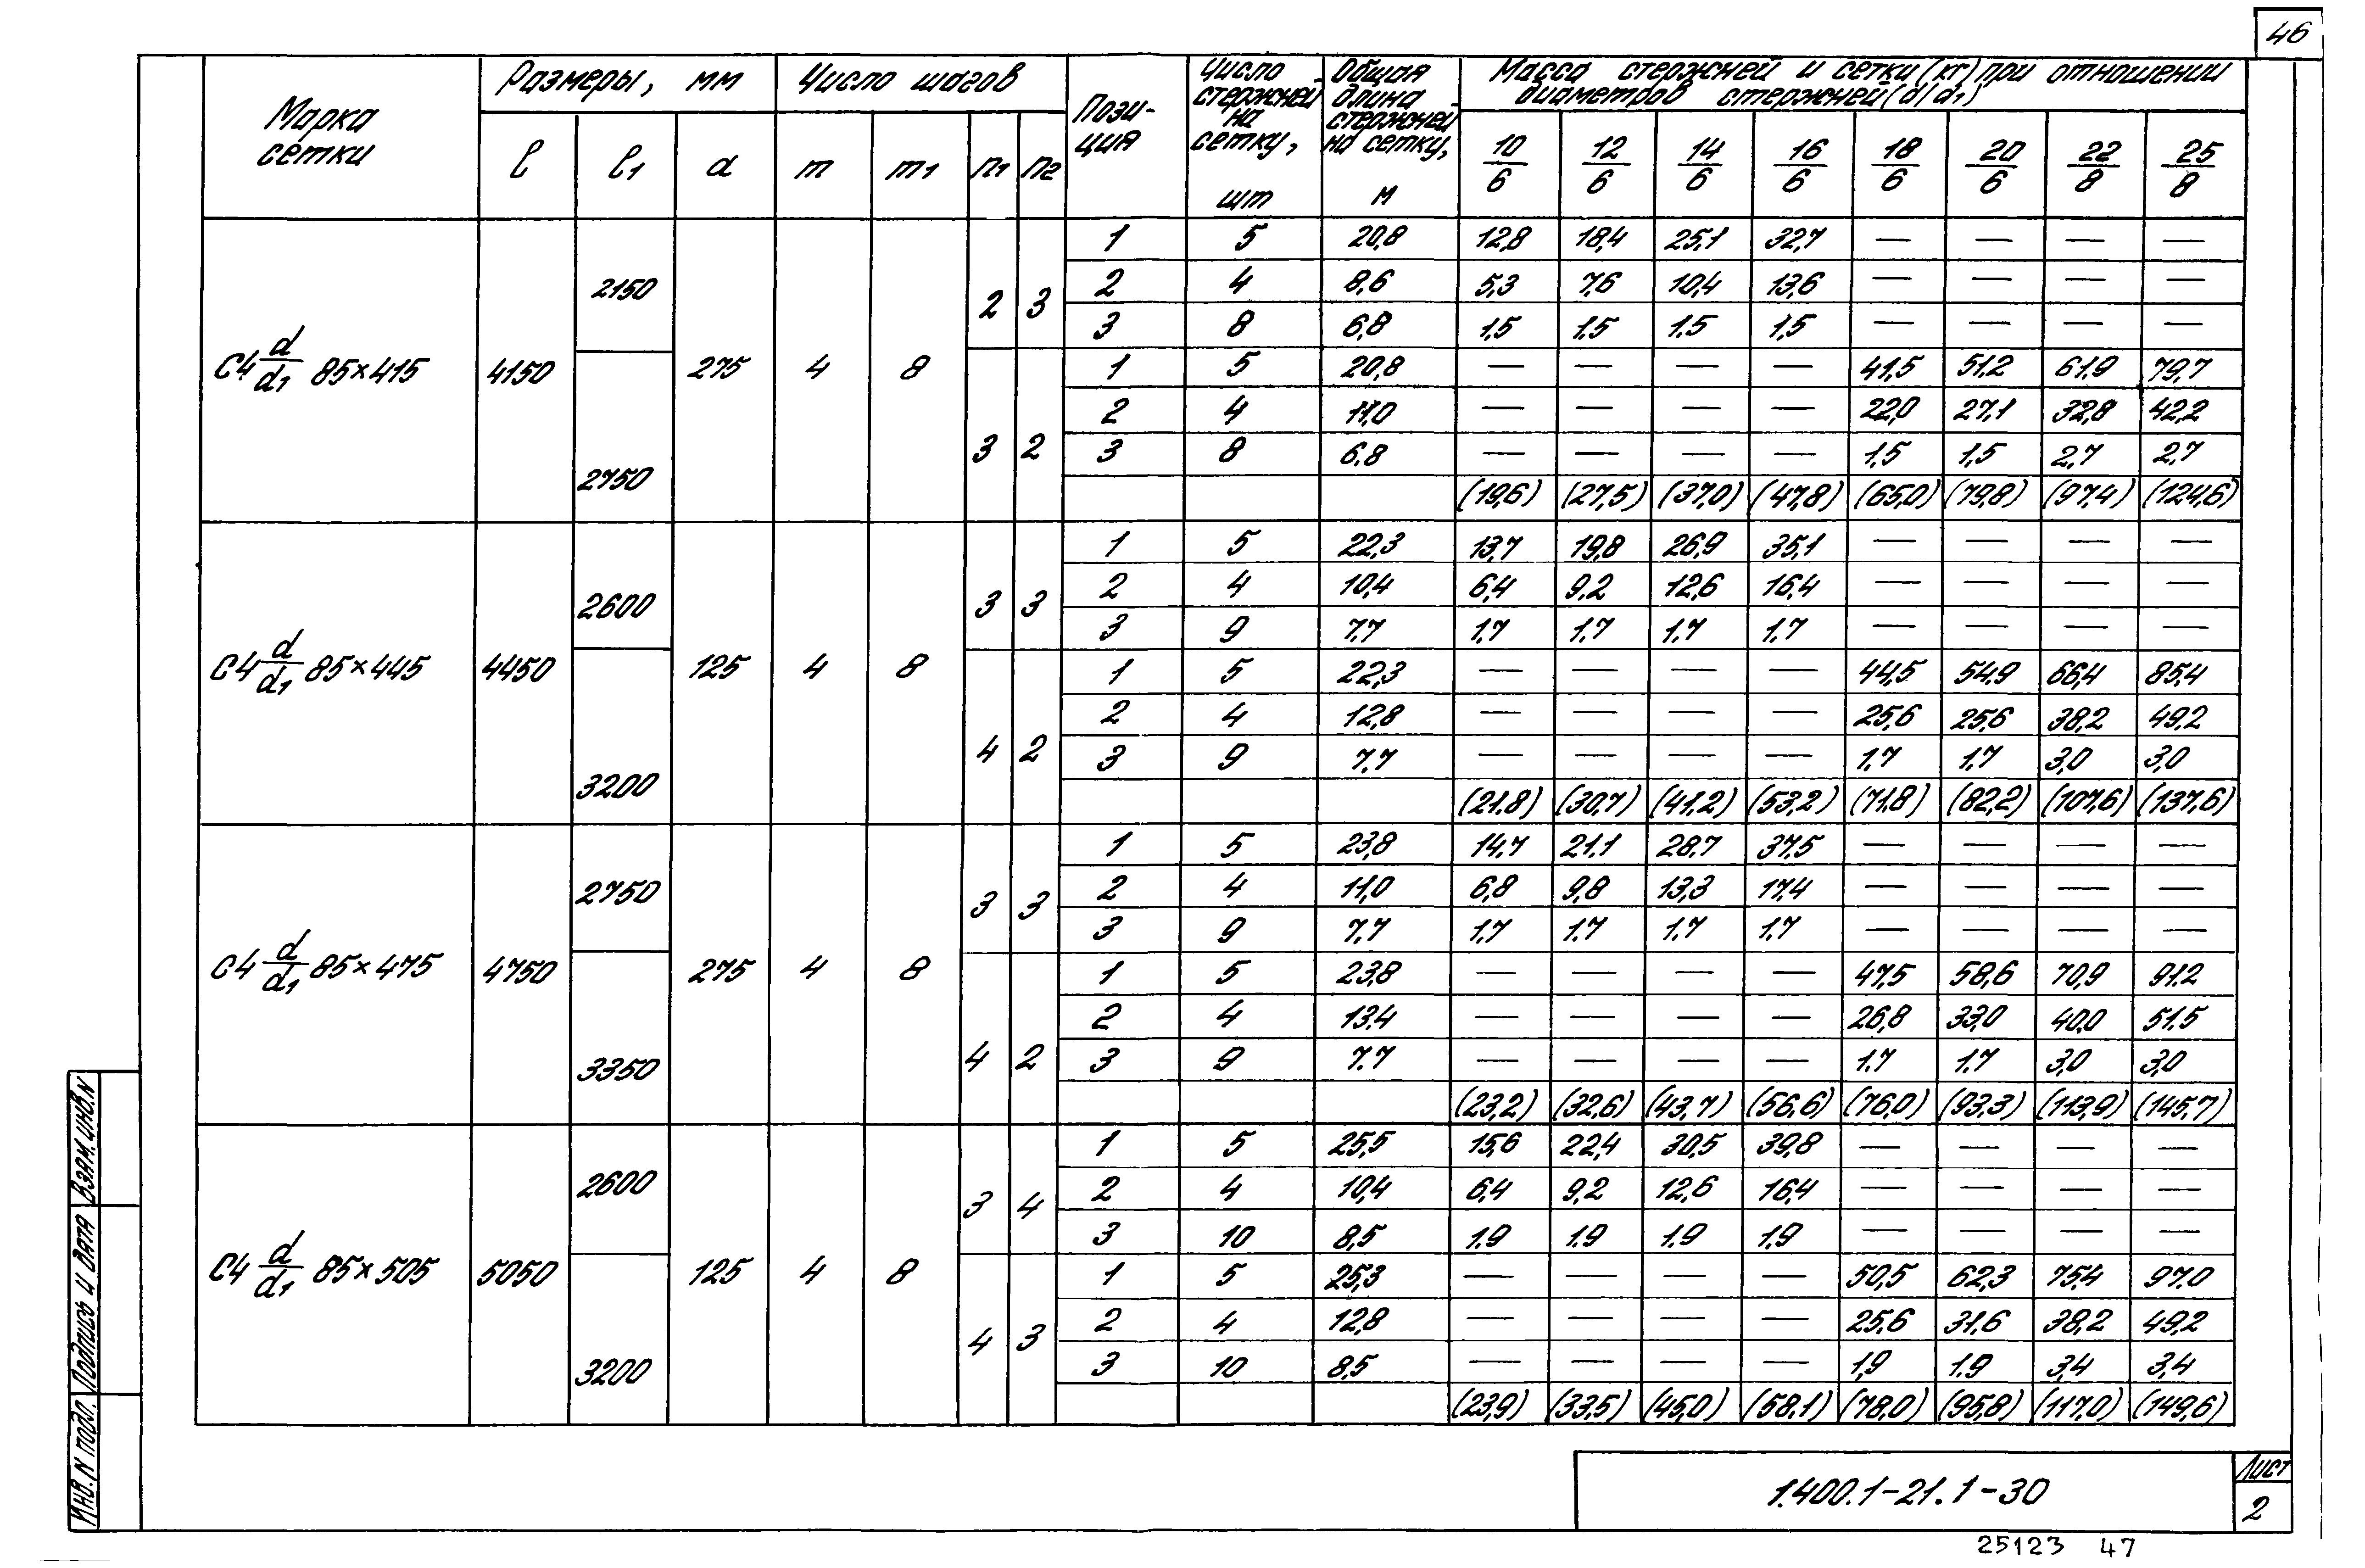 46
Марка сетки
Размеры, мм
Число шагов
Пози-
ция
Число стержней на сетку, шт
Общая длина стержней на сетку, м
Масса стержней и сетки (кг) при отношении
диаметров стержней (d/d1)
l l1 a m m1 n1 n2 10/6 12/6 14/6 16/6 18/6 20/6 22/8 25/8
С4 d/d1 85×415 4150 275 4 8
2150 2 3
1 5 20,8 12,8 18,4 25,1 32,7 — — — —
2 4 8,6 5,3 7,6 10,4 13,6 — — — —
3 8 6,8 1,5 1,5 1,5 1,5 — — — —
2750 3 2
1 5 20,8 — — — — 41,5 51,2 61,9 79,7
2 4 11,0 — — — — 22,0 27,1 32,8 42,2
3 8 6,8 — — — — 1,5 1,5 2,7 2,7
(19,6) (27,5) (37,0) (47,8) (65,0) (79,8) (97,4) (124,6)
С4 d/d1 85×445 4450 125 4 8
2600 3 3
1 5 22,3 13,7 19,8 26,9 35,1 — — — —
2 4 10,4 6,4 9,2 12,6 16,4 — — — —
3 9 7,7 1,7 1,7 1,7 1,7 — — — —
3200 4 2
1 5 22,3 — — — — 44,5 54,9 66,4 85,4
2 4 12,8 — — — — 25,6 25,6 38,2 49,2
3 9 7,7 — — — — 1,7 1,7 3,0 3,0
(21,8) (30,7) (41,2) (53,2) (71,8) (82,2) (107,6) (137,6)
С4 d/d1 85×475 4750 275 4 8
2750 3 3
1 5 23,8 14,7 21,1 28,7 37,5 — — — —
2 4 11,0 6,8 9,8 13,3 17,4 — — — —
3 9 7,7 1,7 1,7 1,7 1,7 — — — —
3350 4 2
1 5 23,8 — — — — 47,5 58,6 70,9 91,2
2 4 13,4 — — — — 26,8 33,0 40,0 51,5
3 9 7,7 — — — — 1,7 1,7 3,0 3,0
(23,2) (32,6) (43,7) (56,6) (76,0) (93,3) (113,9) (145,7)
С4 d/d1 85×505 5050 125 4 8
2600 3 4
1 5 25,5 15,6 22,4 30,5 39,8 — — — —
2 4 10,4 6,4 9,2 12,6 16,4 — — — —
3 10 8,5 1,9 1,9 1,9 1,9 — — — —
3200 4 3
1 5 25,3 — — — — 50,5 62,3 75,4 97,0
2 4 12,8 — — — — 25,6 31,6 38,2 49,2
3 10 8,5 — — — — 1,9 1,9 3,4 3,4
(23,9) (33,5) (45,0) (58,1) (78,0) (95,8) (117,0) (149,6)
Инв. N подл. Подпись и дата Взам. инв. N
1.400.1-21.1-30
Лист
2
25123 47